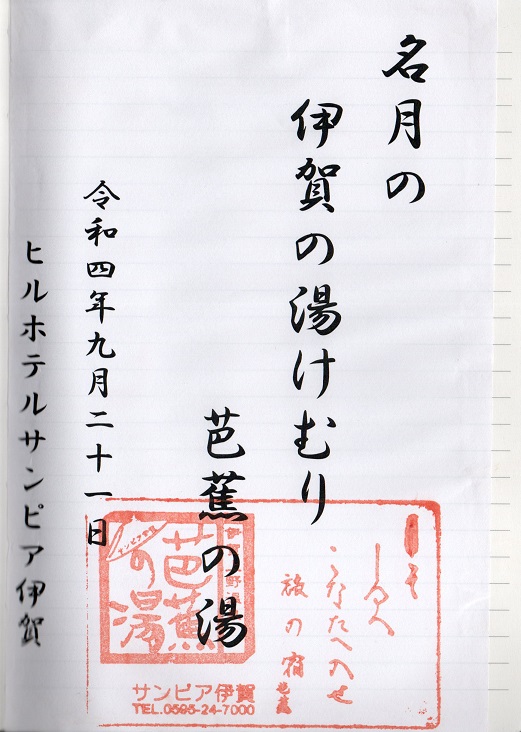 名月の
伊賀の湯けむり
芭蕉の湯
令和四年九月二十一日
ヒルホテルサンピア伊賀
旅の宿
芭蕉の湯
サンピア伊賀
TEL.0595-24-7000